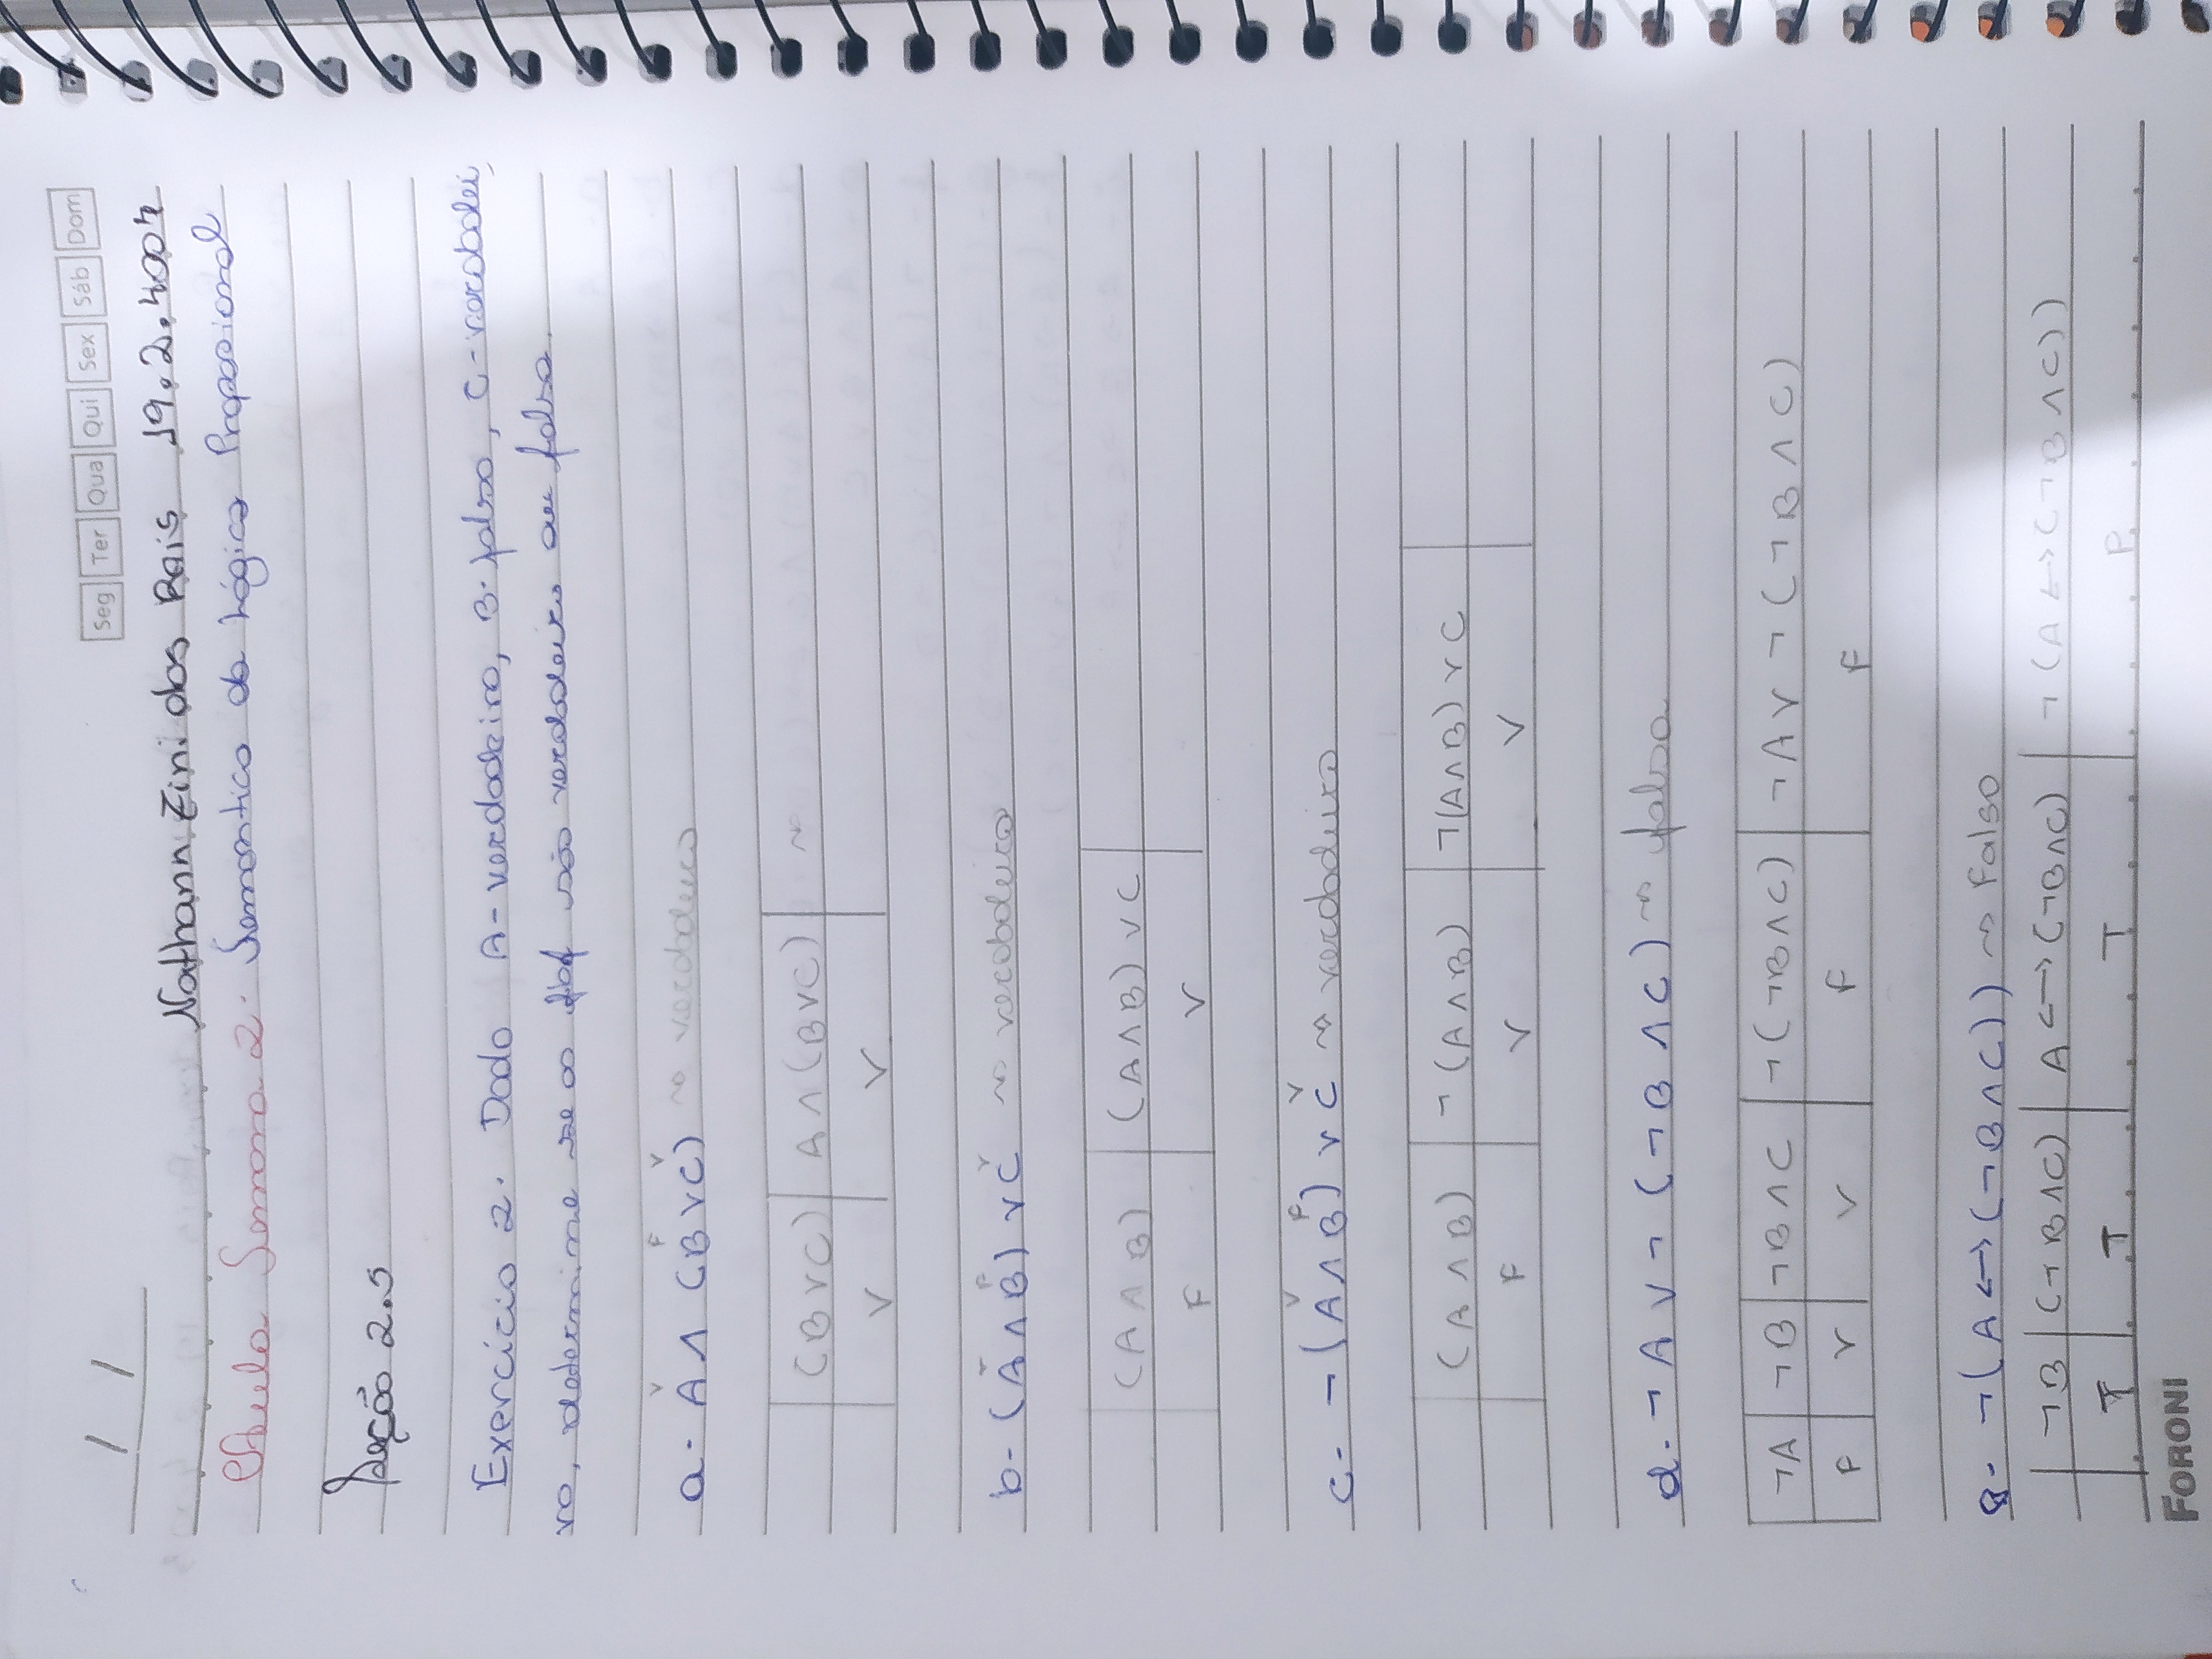 / /
Seg Ter Qua Qui Sex Sáb Dom
Nathann Zini dos Reis 19.2.4007
Aula Semana 2. Semantica da Lógica Proposional
Seção 2.5
Exercício 2. Dado A-verdadeiro, B-falso, C-verdadei
ro, determine se as fbf são verdadeiro ou falso.
V F V
a- A ∧ (B ∨ C) ~> verdadeiro
(B ∨ C) A ∧ (B ∨ C) ~>
V V
V F V
b- (A ∧ B) ∨ C ~> verdadeiro
(A ∧ B) (A ∧ B) ∨ C
F V
V F V
c- ¬(A ∧ B) ∨ C ~> verdadeiro
(A ∧ B) ¬(A ∧ B) ¬(A ∧ B) ∨ C
F V V
d- ¬A ∨ ¬(¬B ∧ C) ~> falsa
¬A ¬B ¬B ∧ C ¬(¬B ∧ C) ¬A ∨ ¬(¬B ∧ C)
F V V F F
e- ¬(A ↔ (¬B ∧ C)) ~> Falso
¬B (¬B ∧ C) A ↔ (¬B ∧ C) ¬(A ↔ (¬B ∧ C))
T T T F
FORONI